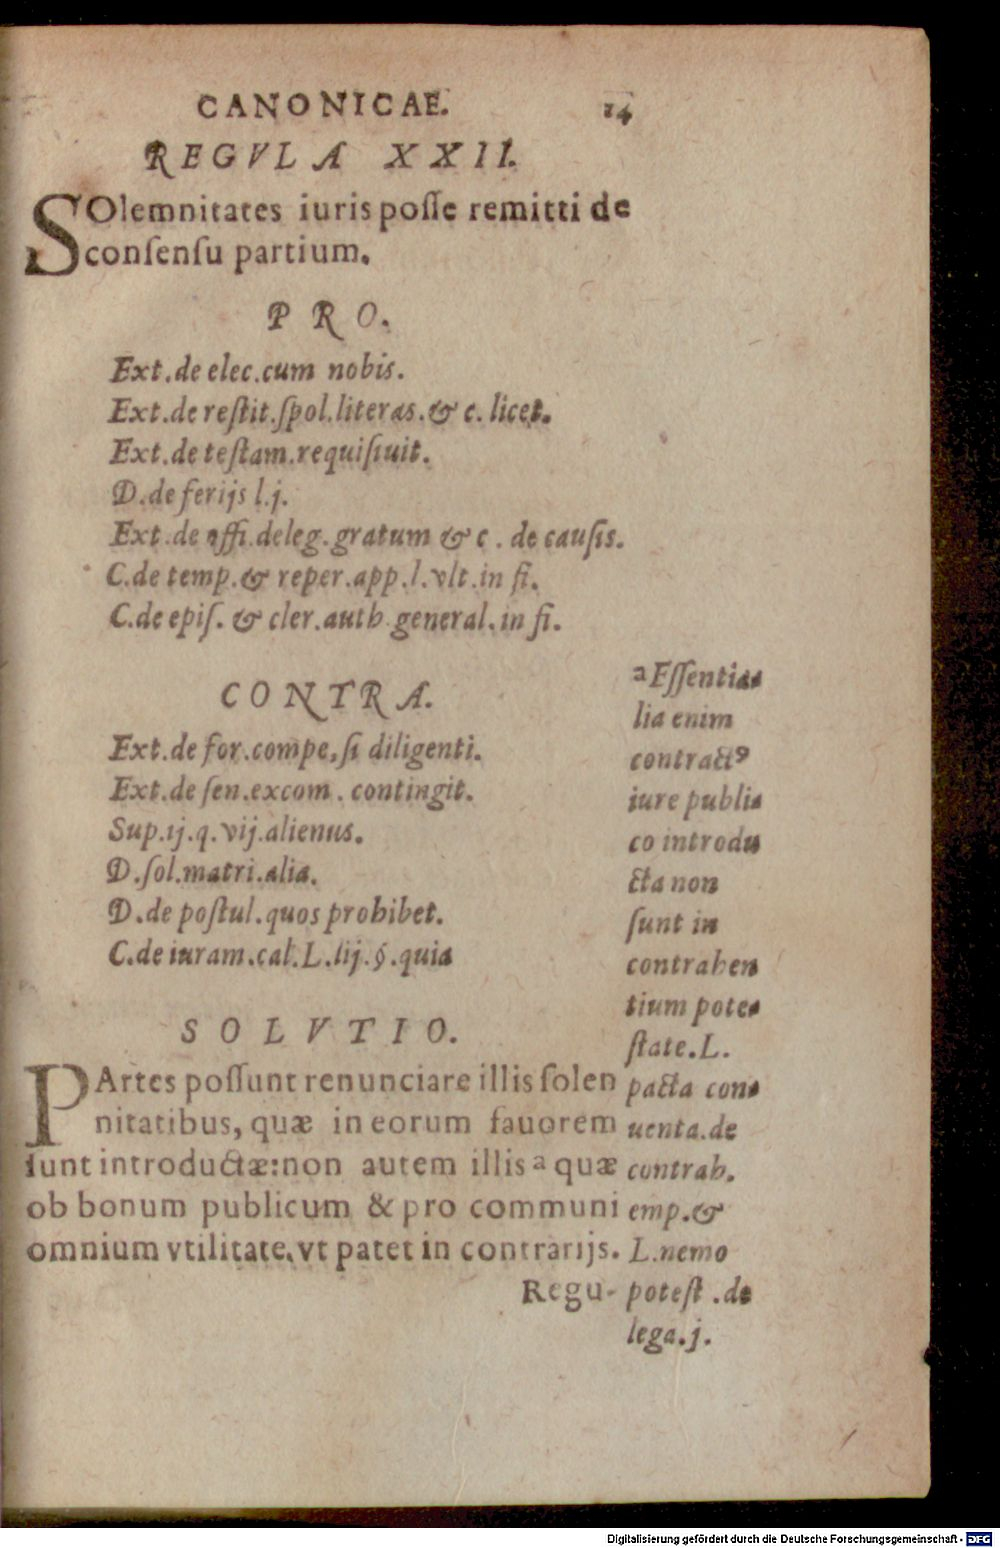 CANONICAE. 14
REGVLA XXII.
SOlemnitates iuris posſe remitti de
conſenſu partium.
PRO.
Ext.de elec.cum nobis.
Ext.de reſtit.ſpol.literas.& c.licet.
Ext.de teſtam.requiſiuit.
D.de ferijs l.j.
Ext.de offi.deleg.gratum & c.de cauſis.
C.de temp.& reper.app.l.vlt.in fi.
C.de epiſ.& cler.auth.general.in fi.
CONTRA.
Ext.de for.compe.ſi diligenti.
Ext.de ſen.excom.contingit.
Sup.ij.q.vij.alienus.
D.ſol.matri.alia.
D.de poſtul.quos prohibet.
C.de iuram.cal.L.iij.§.quia
SOLVTIO.
PArtes poſſunt renunciare illis ſolen
nitatibus, quæ in eorum fauorem
ſunt introductæ:non autem illis a quæ
ob bonum publicum & pro communi
omnium vtilitate,vt patet in contrarijs.
Regu-
a Eſſentia-
lia enim
contractꝰ
iure publi-
co introdu
cta non
ſunt in
contrahen
tium pote-
ſtate.L.
pacta con-
uenta.de
contrah.
emp.&
L.nemo
poteſt.de
lega.j.
Digitalisierung gefördert durch die Deutsche Forschungsgemeinschaft - DFG